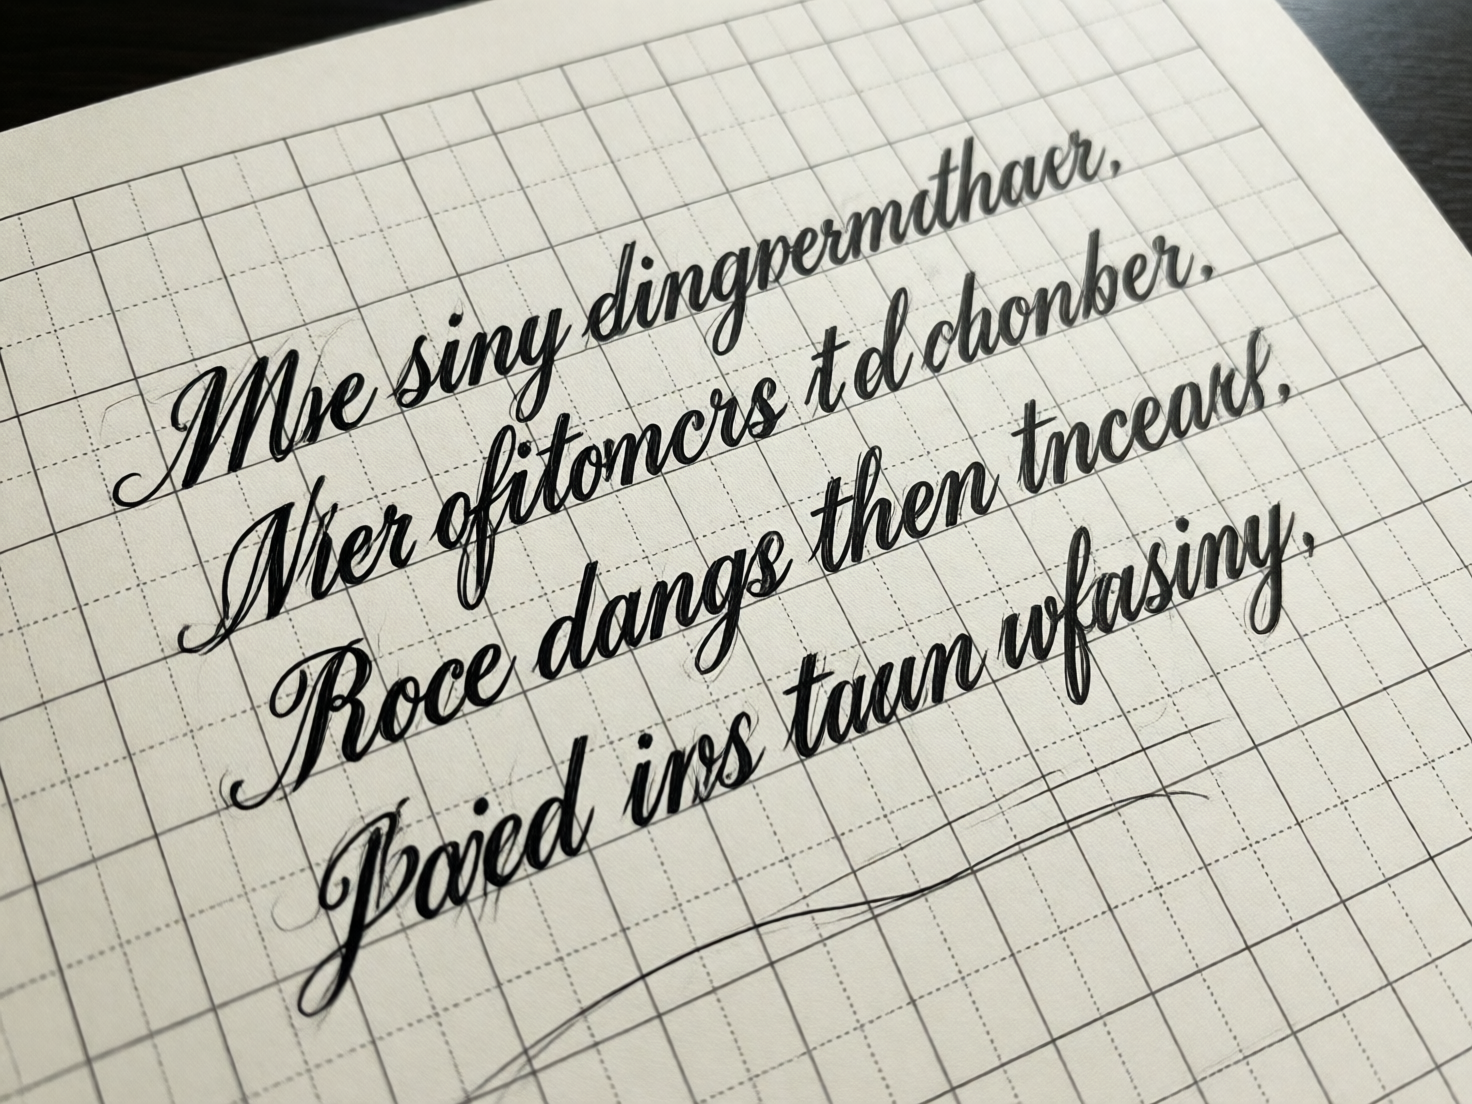 Mre siny dingpermcthaer,
Nier ofitomcrs td chonber,
Roce dangs then tncears,
Paied inrs taun wfasiny,